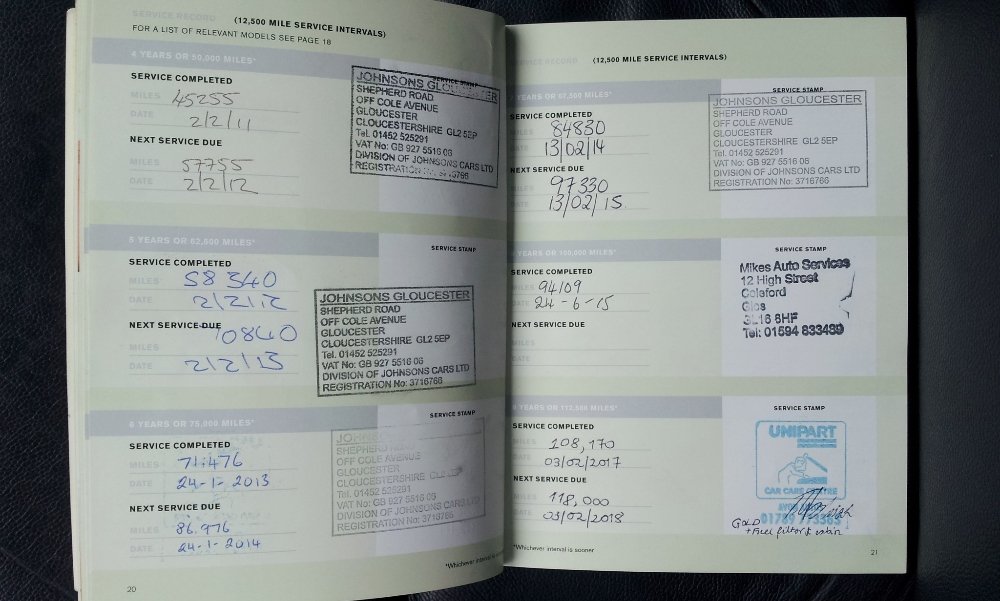 SERVICE RECORD (12,500 MILE SERVICE INTERVALS)
FOR A LIST OF RELEVANT MODELS SEE PAGE 18
4 YEARS OR 50,000 MILES*
SERVICE STAMP
SERVICE COMPLETED
MILES 45255
DATE 2/2/11
NEXT SERVICE DUE
MILES 57755
DATE 2/2/12
JOHNSONS GLOUCESTER
SHEPHERD ROAD
OFF COLE AVENUE
GLOUCESTER
GLOUCESTERSHIRE GL2 5EP
Tel. 01452 525291
VAT No: GB 927 5516 06
DIVISION OF JOHNSONS CARS LTD
REGISTRATION No: 3716766
5 YEARS OR 62,500 MILES*
SERVICE STAMP
SERVICE COMPLETED
MILES 58340
DATE 2/2/12
NEXT SERVICE DUE
MILES 70840
DATE 2/2/13
JOHNSONS GLOUCESTER
SHEPHERD ROAD
OFF COLE AVENUE
GLOUCESTER
GLOUCESTERSHIRE GL2 5EP
Tel. 01452 525291
VAT No: GB 927 5516 06
DIVISION OF JOHNSONS CARS LTD
REGISTRATION No: 3716766
6 YEARS OR 75,000 MILES*
SERVICE STAMP
SERVICE COMPLETED
MILES 71.476
DATE 24-1-2013
NEXT SERVICE DUE
MILES 86.976
DATE 24-1-2014
SHEPHERD ROAD
OFF COLE AVENUE
GLOUCESTER
GLOUCESTERSHIRE
Tel. 01452 525291
VAT No: GB 927 5516 06
DIVISION OF JOHNSONS CARS LTD
REGISTRATION No: 3716766
*Whichever interval is
20
SERVICE RECORD (12,500 MILE SERVICE INTERVALS)
7 YEARS OR 87,500 MILES*
SERVICE STAMP
SERVICE COMPLETED
MILES 84830
DATE 13/02/14
NEXT SERVICE DUE
MILES 97330
DATE 13/02/15.
JOHNSONS GLOUCESTER
SHEPHERD ROAD
OFF COLE AVENUE
GLOUCESTER
GLOUCESTERSHIRE GL2 5EP
Tel. 01452 525291
VAT No: GB 927 5516 06
DIVISION OF JOHNSONS CARS LTD
REGISTRATION No: 3716766
YEARS OR 100,000 MILES*
SERVICE STAMP
SERVICE COMPLETED
MILES 94109
DATE 24-6-15
NEXT SERVICE DUE
MILES
DATE
Mikes Auto Services
12 High Street
Coleford
Glos
GL16 8HF
Tel: 01594 833439
9 YEARS OR 112,500 MILES*
SERVICE STAMP
SERVICE COMPLETED
MILES 108,170
DATE 03/02/2017
NEXT SERVICE DUE
MILES 118,000
DATE 03/02/2018
UNIPART
CAR CARE CENTRE
GOLD
+ Fuel filter & cabin
*Whichever interval is sooner
21